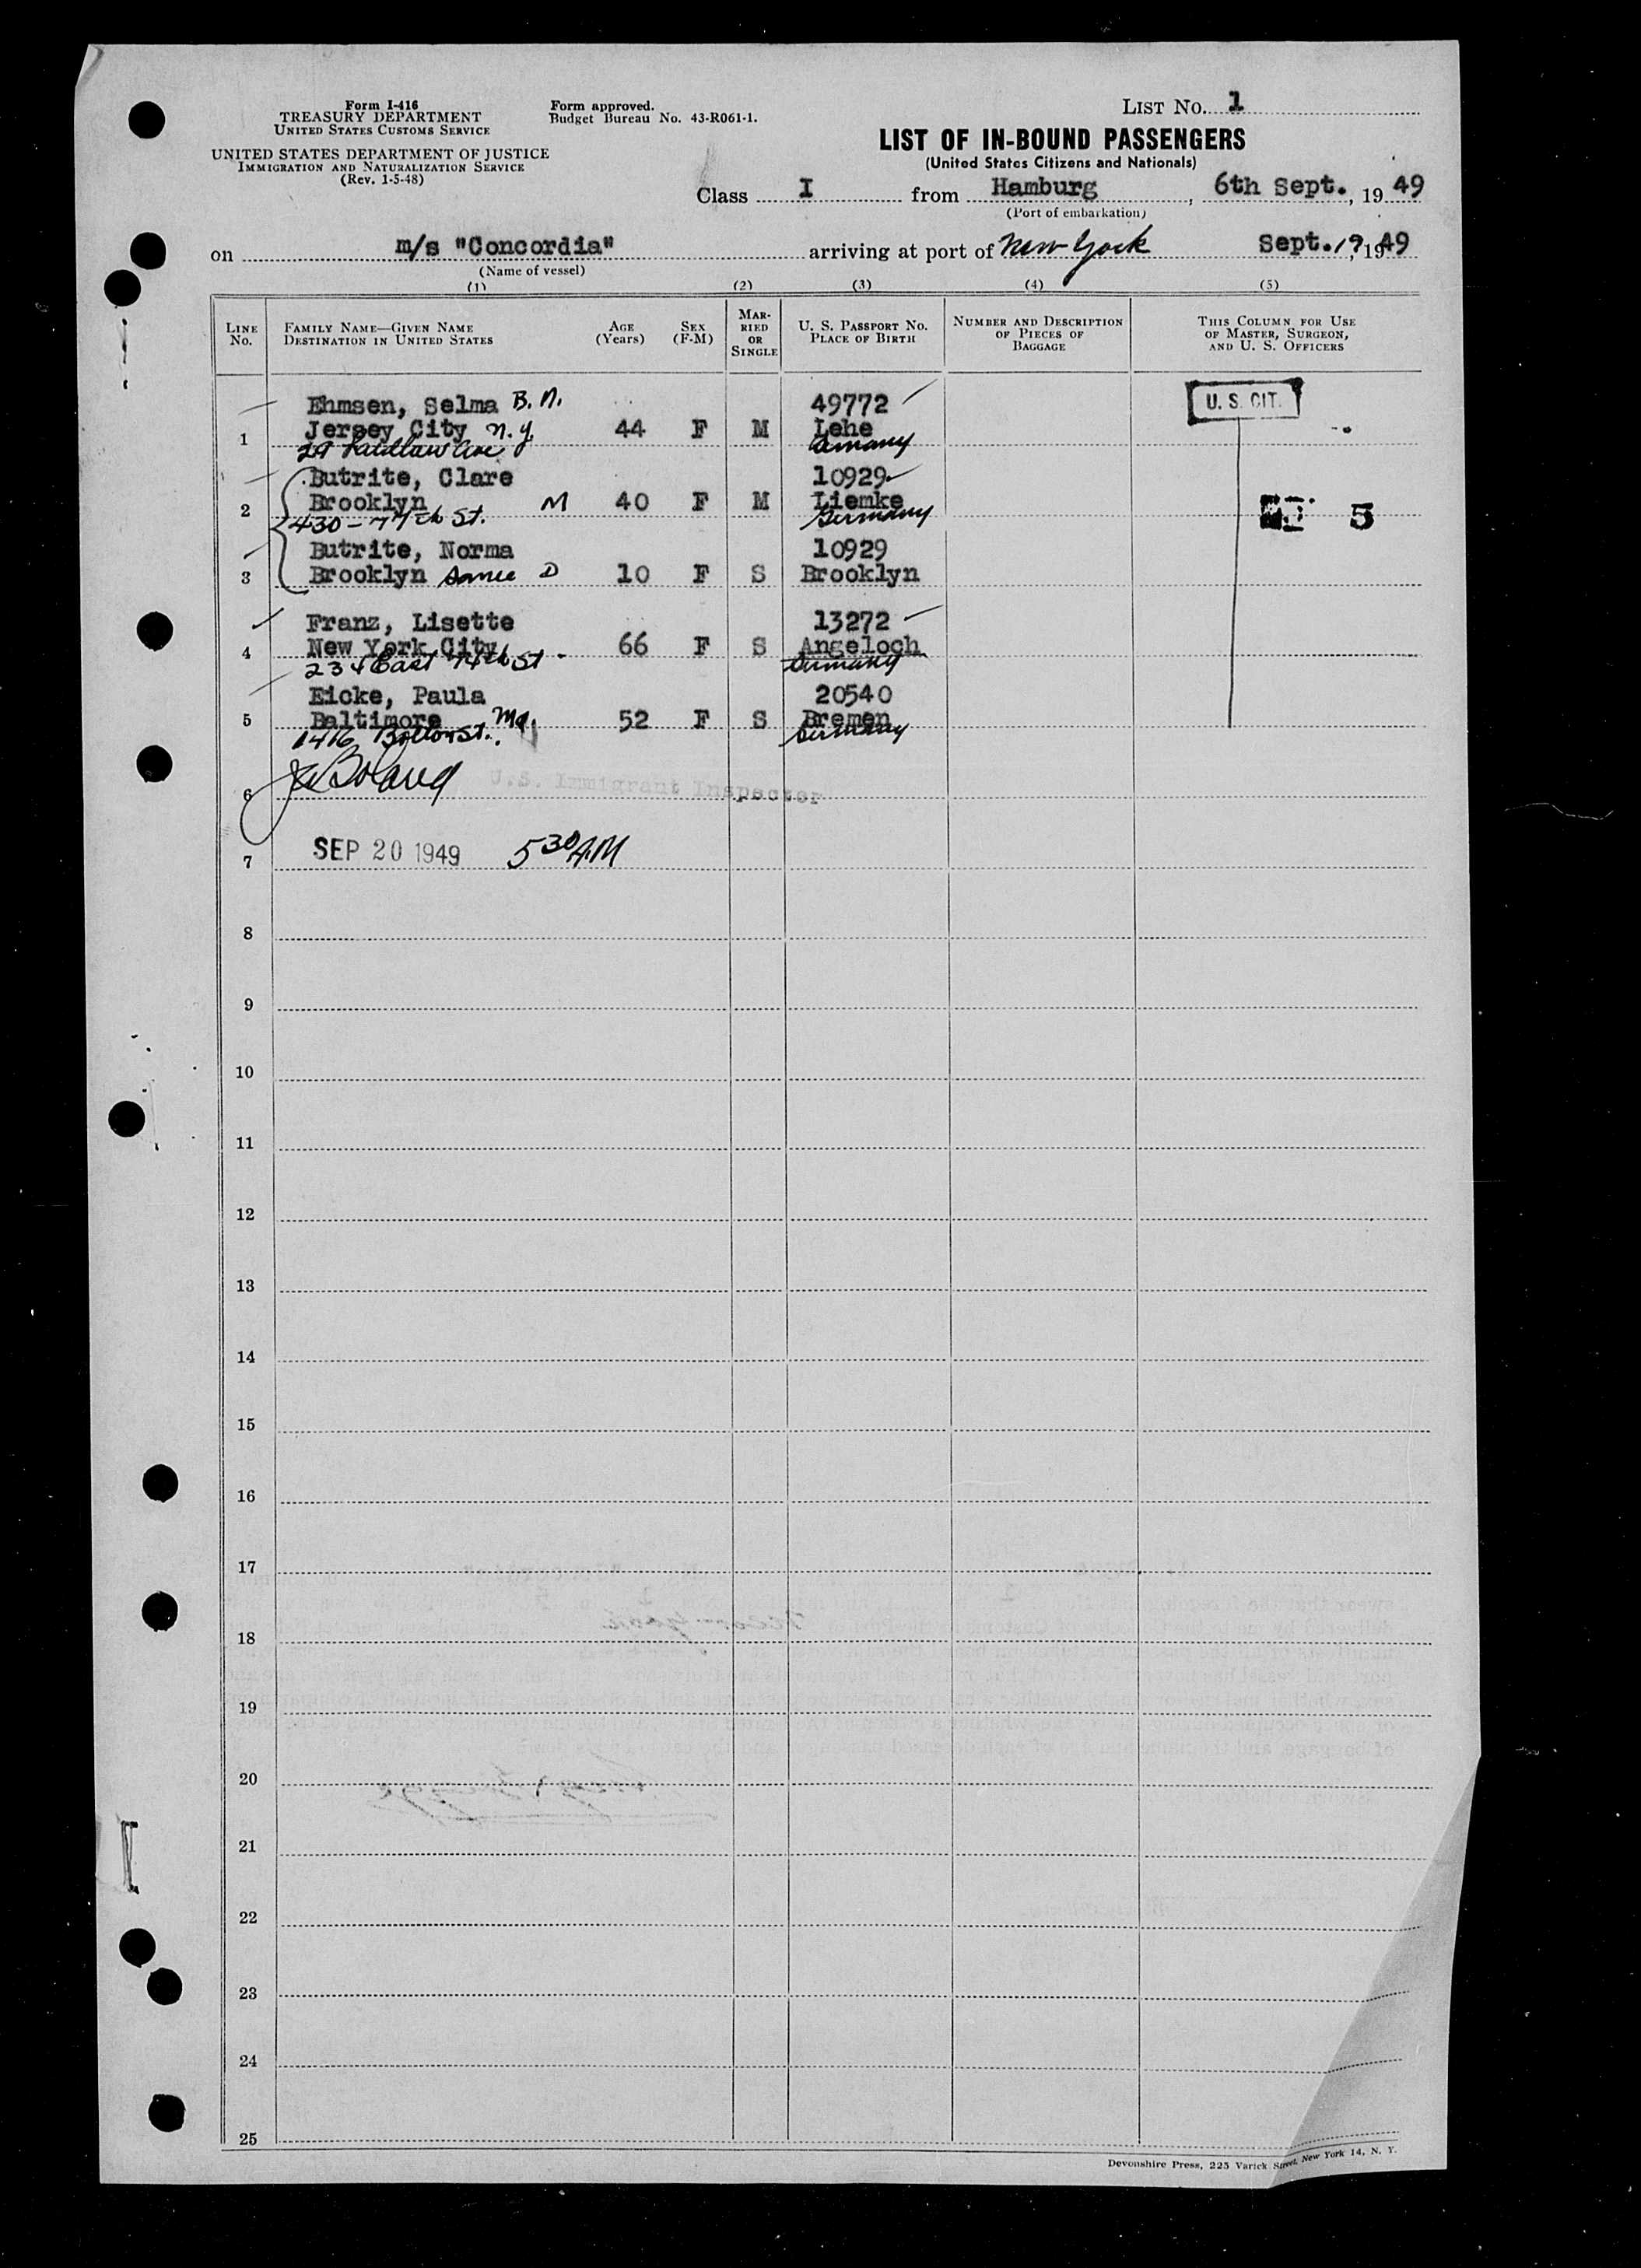 Form I-416
TREASURY DEPARTMENT
UNITED STATES CUSTOMS SERVICE
UNITED STATES DEPARTMENT OF JUSTICE
IMMIGRATION AND NATURALIZATION SERVICE
(Rev. 1-5-48)
Form approved.
Budget Bureau No. 43-R061-1.
LIST NO. 1
LIST OF IN-BOUND PASSENGERS
(United States Citizens and Nationals)
Class I from Hamburg, 6th Sept., 1949
(Port of embarkation)
on m/s "Concordia" arriving at port of New York Sept. 19, 1949
(Name of vessel)
(1) (2) (3) (4) (5)
LINE NO. FAMILY NAME—GIVEN NAME DESTINATION IN UNITED STATES AGE (Years) SEX (F-M) MARRIED OR SINGLE U. S. PASSPORT NO. PLACE OF BIRTH NUMBER AND DESCRIPTION OF PIECES OF BAGGAGE THIS COLUMN FOR USE OF MASTER, SURGEON, AND U. S. OFFICERS
Ehmsen, Selma B. N. 49772 U. S. CIT.
1 Jersey City N.Y. 44 F M Lehe
29 Laidlaw Ave Germany
Butrite, Clare 10929
2 Brooklyn M 40 F M Liemke 5
430-77th St. Germany
Butrite, Norma 10929
3 Brooklyn Same D 10 F S Brooklyn
Franz, Lisette 13272
4 New York City 66 F S Angeloch
234 East 74th St Germany
Eicke, Paula 20540
5 Baltimore Md. 52 F S Bremen
1416 Bolton St. Germany
6 U.S. Immigrant Inspector
7 SEP 20 1949 5 30 AM
8
9
10
11
12
13
14
15
16
17
18
19
20
21
22
23
24
25
Devonshire Press, 225 Varick Street, New York 14, N. Y.